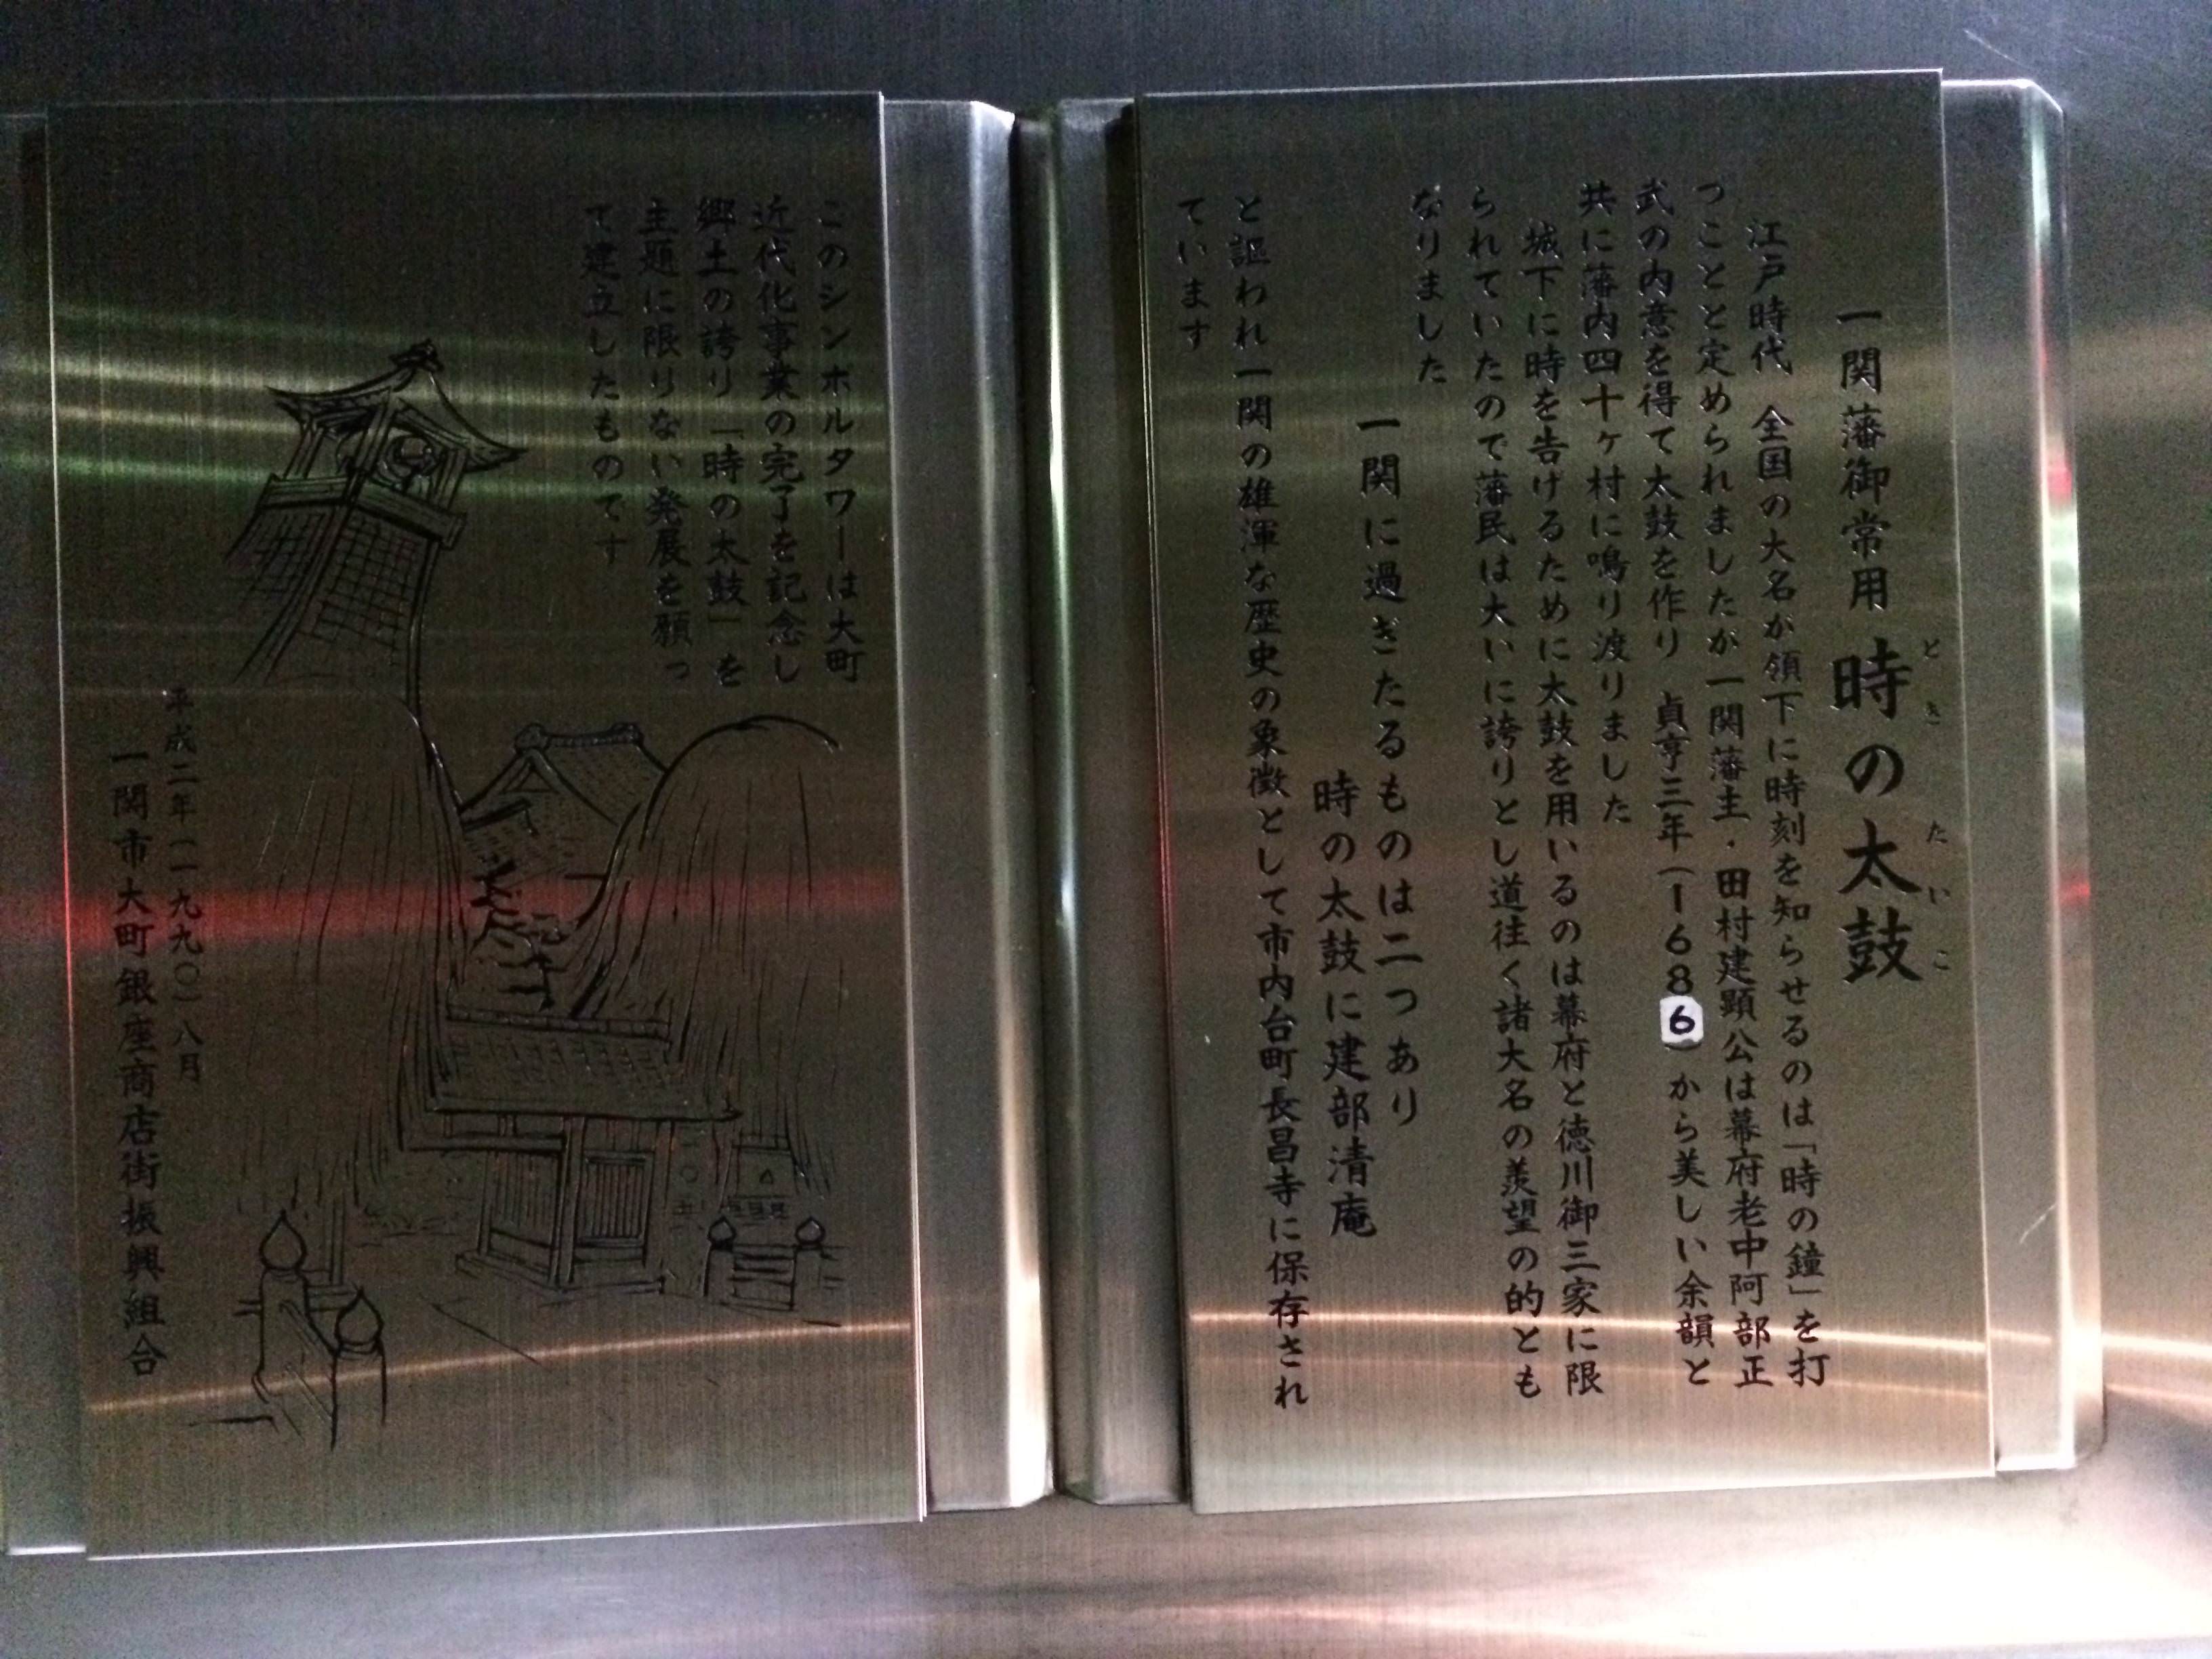 一関藩御常用 時の太鼓
とき たいこ
江戸時代 全国の大名が領下に時刻を知らせるのは「時の鐘」を打
つことと定められましたが一関藩主・田村建顕公は幕府老中阿部正
武の内意を得て太鼓を作り 貞享三年(1686)から美しい余韻と
共に藩内四十ヶ村に鳴り渡りました
城下に時を告げるために太鼓を用いるのは幕府と徳川御三家に限
られていたので藩民は大いに誇りとし道往く諸大名の羨望の的とも
なりました
一関に過ぎたるものは二つあり
時の太鼓に建部清庵
と謳われ一関の雄渾な歴史の象徴として市内台町長昌寺に保存され
ています
このシンホルタワーは大町
近代化事業の完了を記念し
郷土の誇り「時の太鼓」を
主題に限りない発展を願っ
て建立したものてす
平成二年(一九九〇)八月
一関市大町銀座商店街振興組合